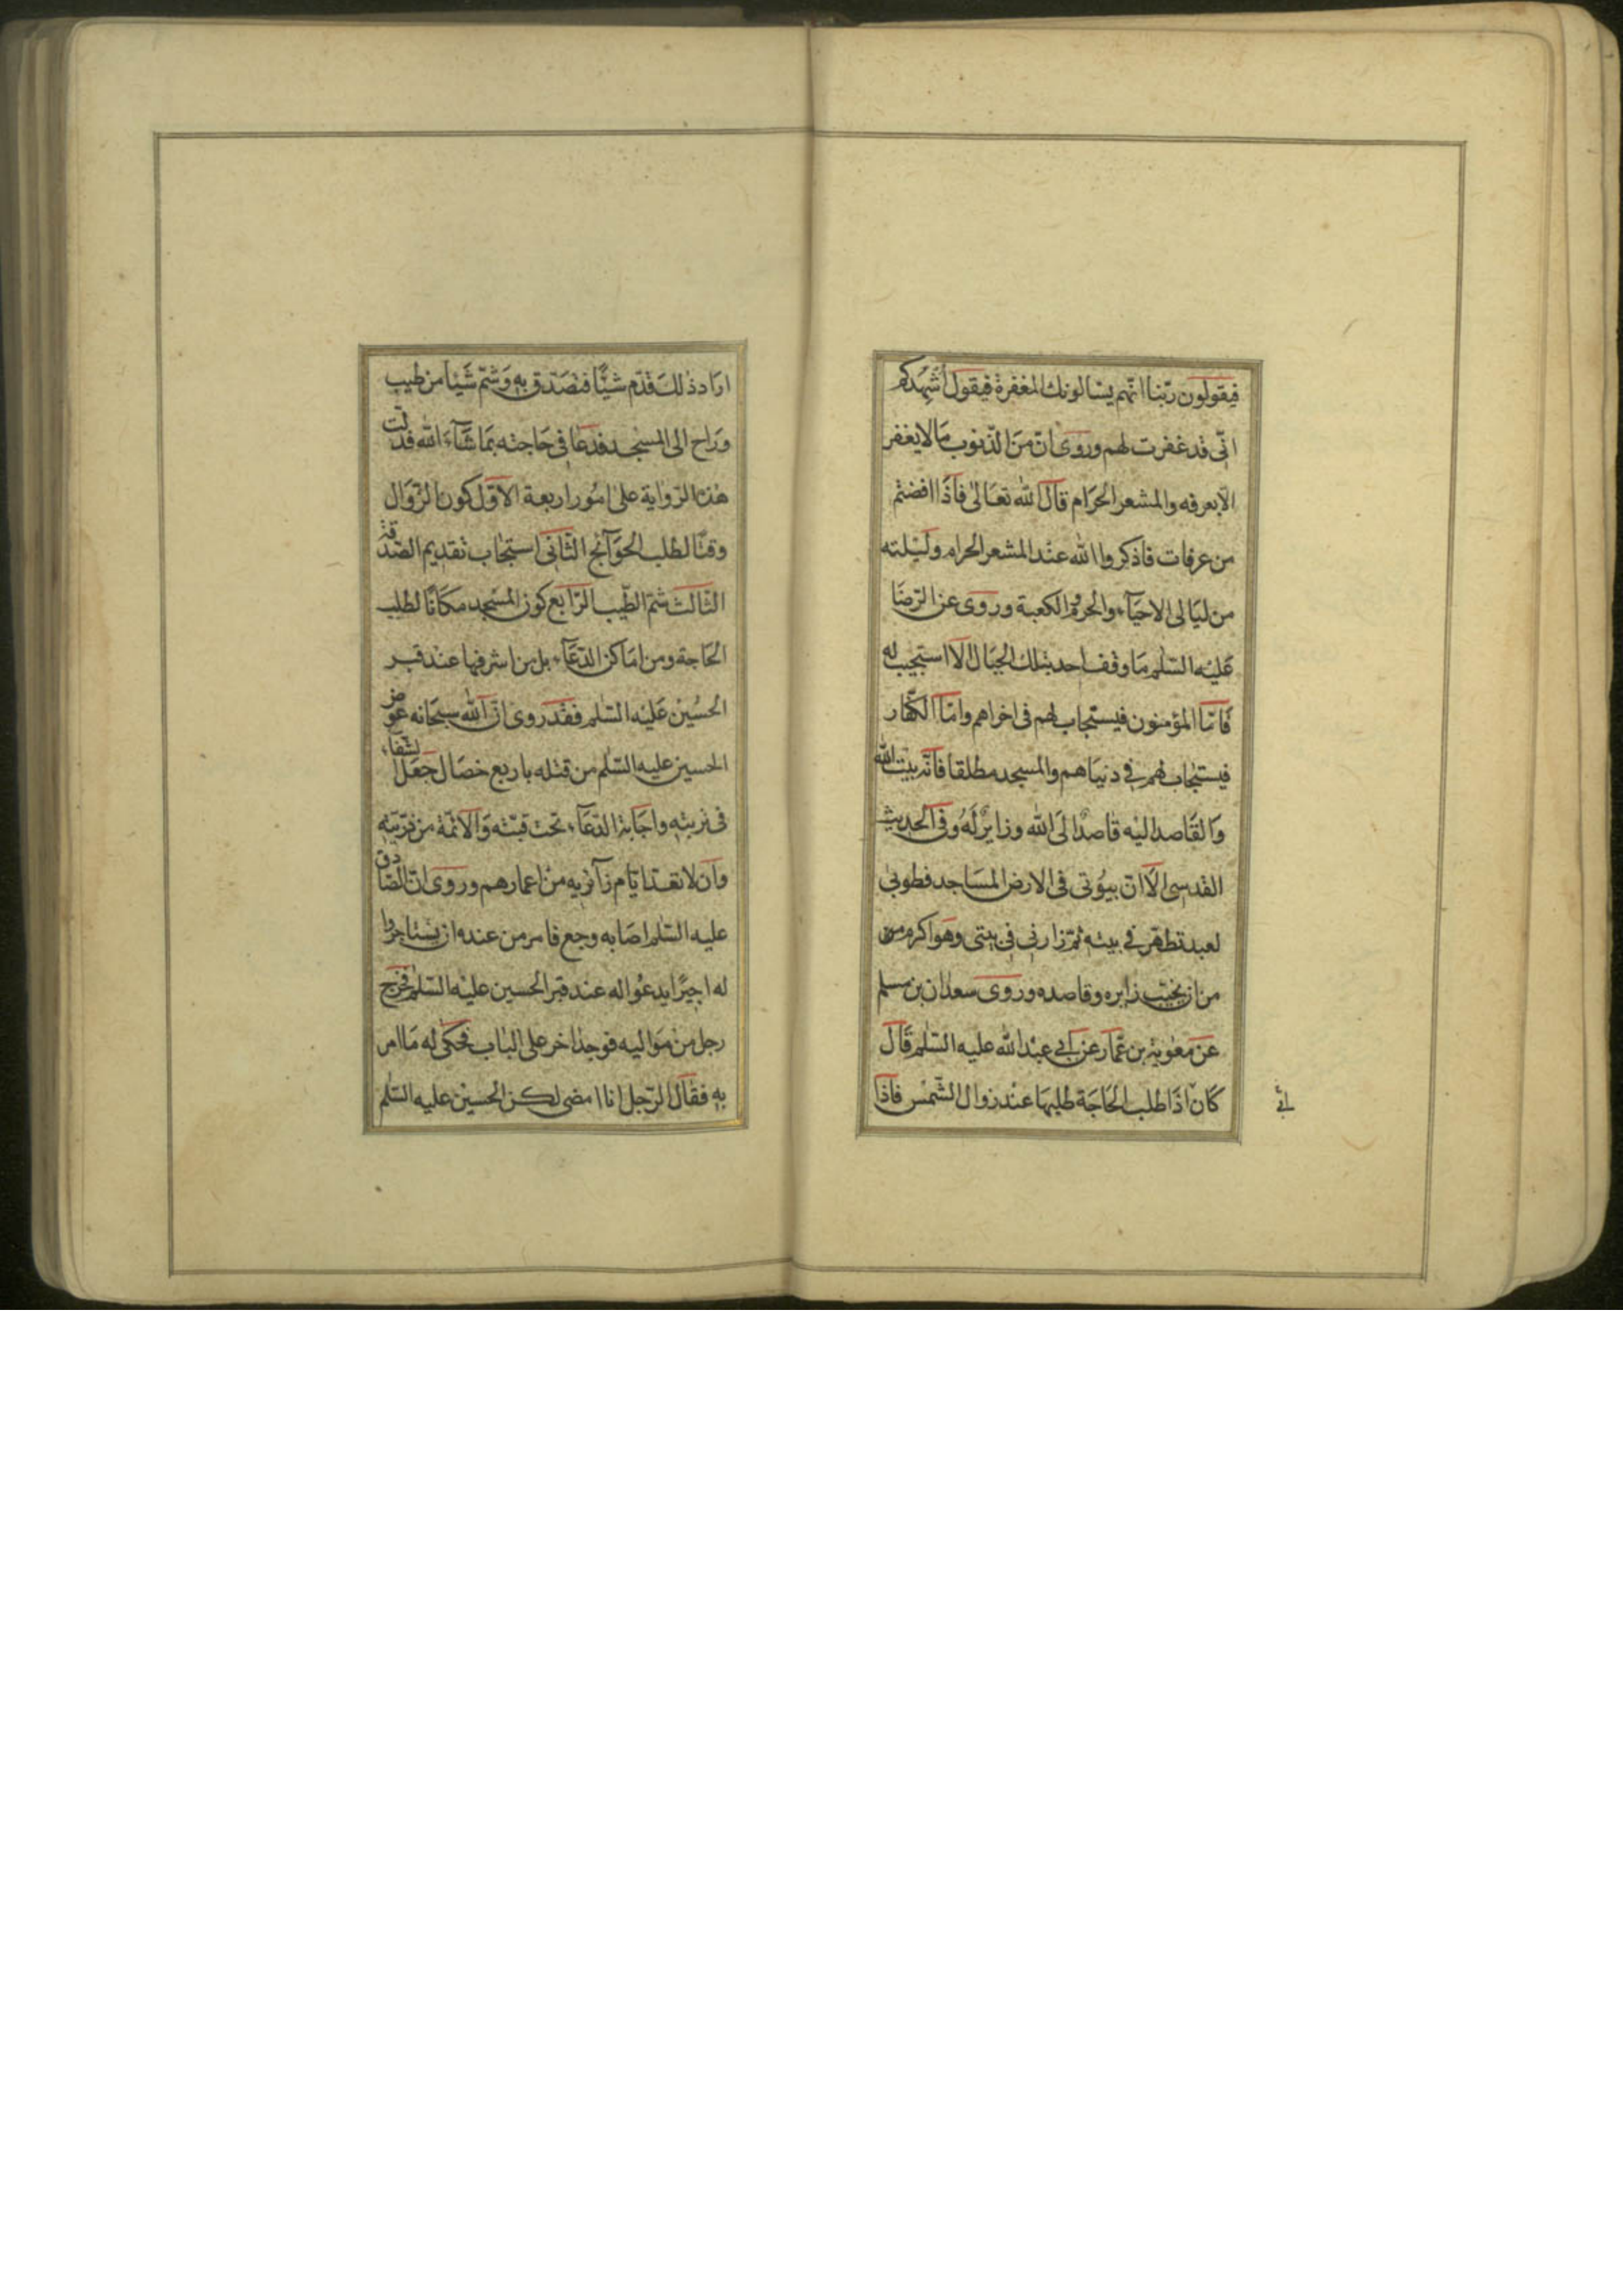 فيقولون ربّنا انّهم يسالونك المغفرة فيقول اُشهدكم
انّى قد غفرت لهم وروى انّ من الذّنوب ما لا يغفر
الّا بعرفه والمشعر الحرام قال الله تعالى فاذا افضتم
من عرفات فاذكروا الله عند المشعر الحرام وليلته
من ليالى الاحيآء والحرم والكعبة وروى عن الرّضا
عليه السّلم ما وقف احد بتلك الجبال الا استجيب له
فامّا المؤمنون فيستجاب لهم فى اخراهم وامّا الكفّار
فيستجاب لهم فى دنياهم والمسجد مطلقا فانّه بيت الله
والقاصد اليه قاصدٌ الى الله وزايرٌ له وفى الحديث
القدسى الا انّ بيوتى فى الارض المساجد فطوبى
لعبد تطهّر فى بيته ثمّ زارنى فى بيتى وهو اكرم من
من ان يخيّب زايره وقاصده وروى سعدان بن مسلم
عن معوية بن عمّار عن ابى عبد الله عليه السّلم قال
كان اذا طلب الحاجة طلبها عند زوال الشّمس فاذا
اراد ذلك قدّم شيئًا فتصدّق به وشمّ شيئا من طيب
وراح الى المسجد فدعا فى حاجته بما شآء الله فدلّت
هذه الرّواية على امور اربعة الاوّل كون الزّوال
وقتًا لطلب الحوآئج الثّانى استحباب تقديم الصّدقة
الثّالث شمّ الطّيب الرّابع كون المسجد مكانًا لطلب
الحاجة ومن اماكن الدّعآء بل من اشرفها عند قبر
الحسين عليه السّلم فقد روى انّ الله سبحانه عوّض
الحسين عليه السّلم من قتله باربع خصال جعل الشّفآء
فى تربته واجابة الدّعآء تحت قبّته والائمّة من ذرّيّته
وان لا تعدّ ايّام زآئريه من اعمارهم وروى انّ الصّادق
عليه السّلم اصابه وجع فامر من عنده ان يستاجروا
له اجيرًا يدعوا له عند قبر الحسين عليه السّلم فخرج
رجل من مواليه فوجد اخر على الباب فحكى له ما امر
به فقال الرّجل انا امضى لكن الحسين عليه السّلم